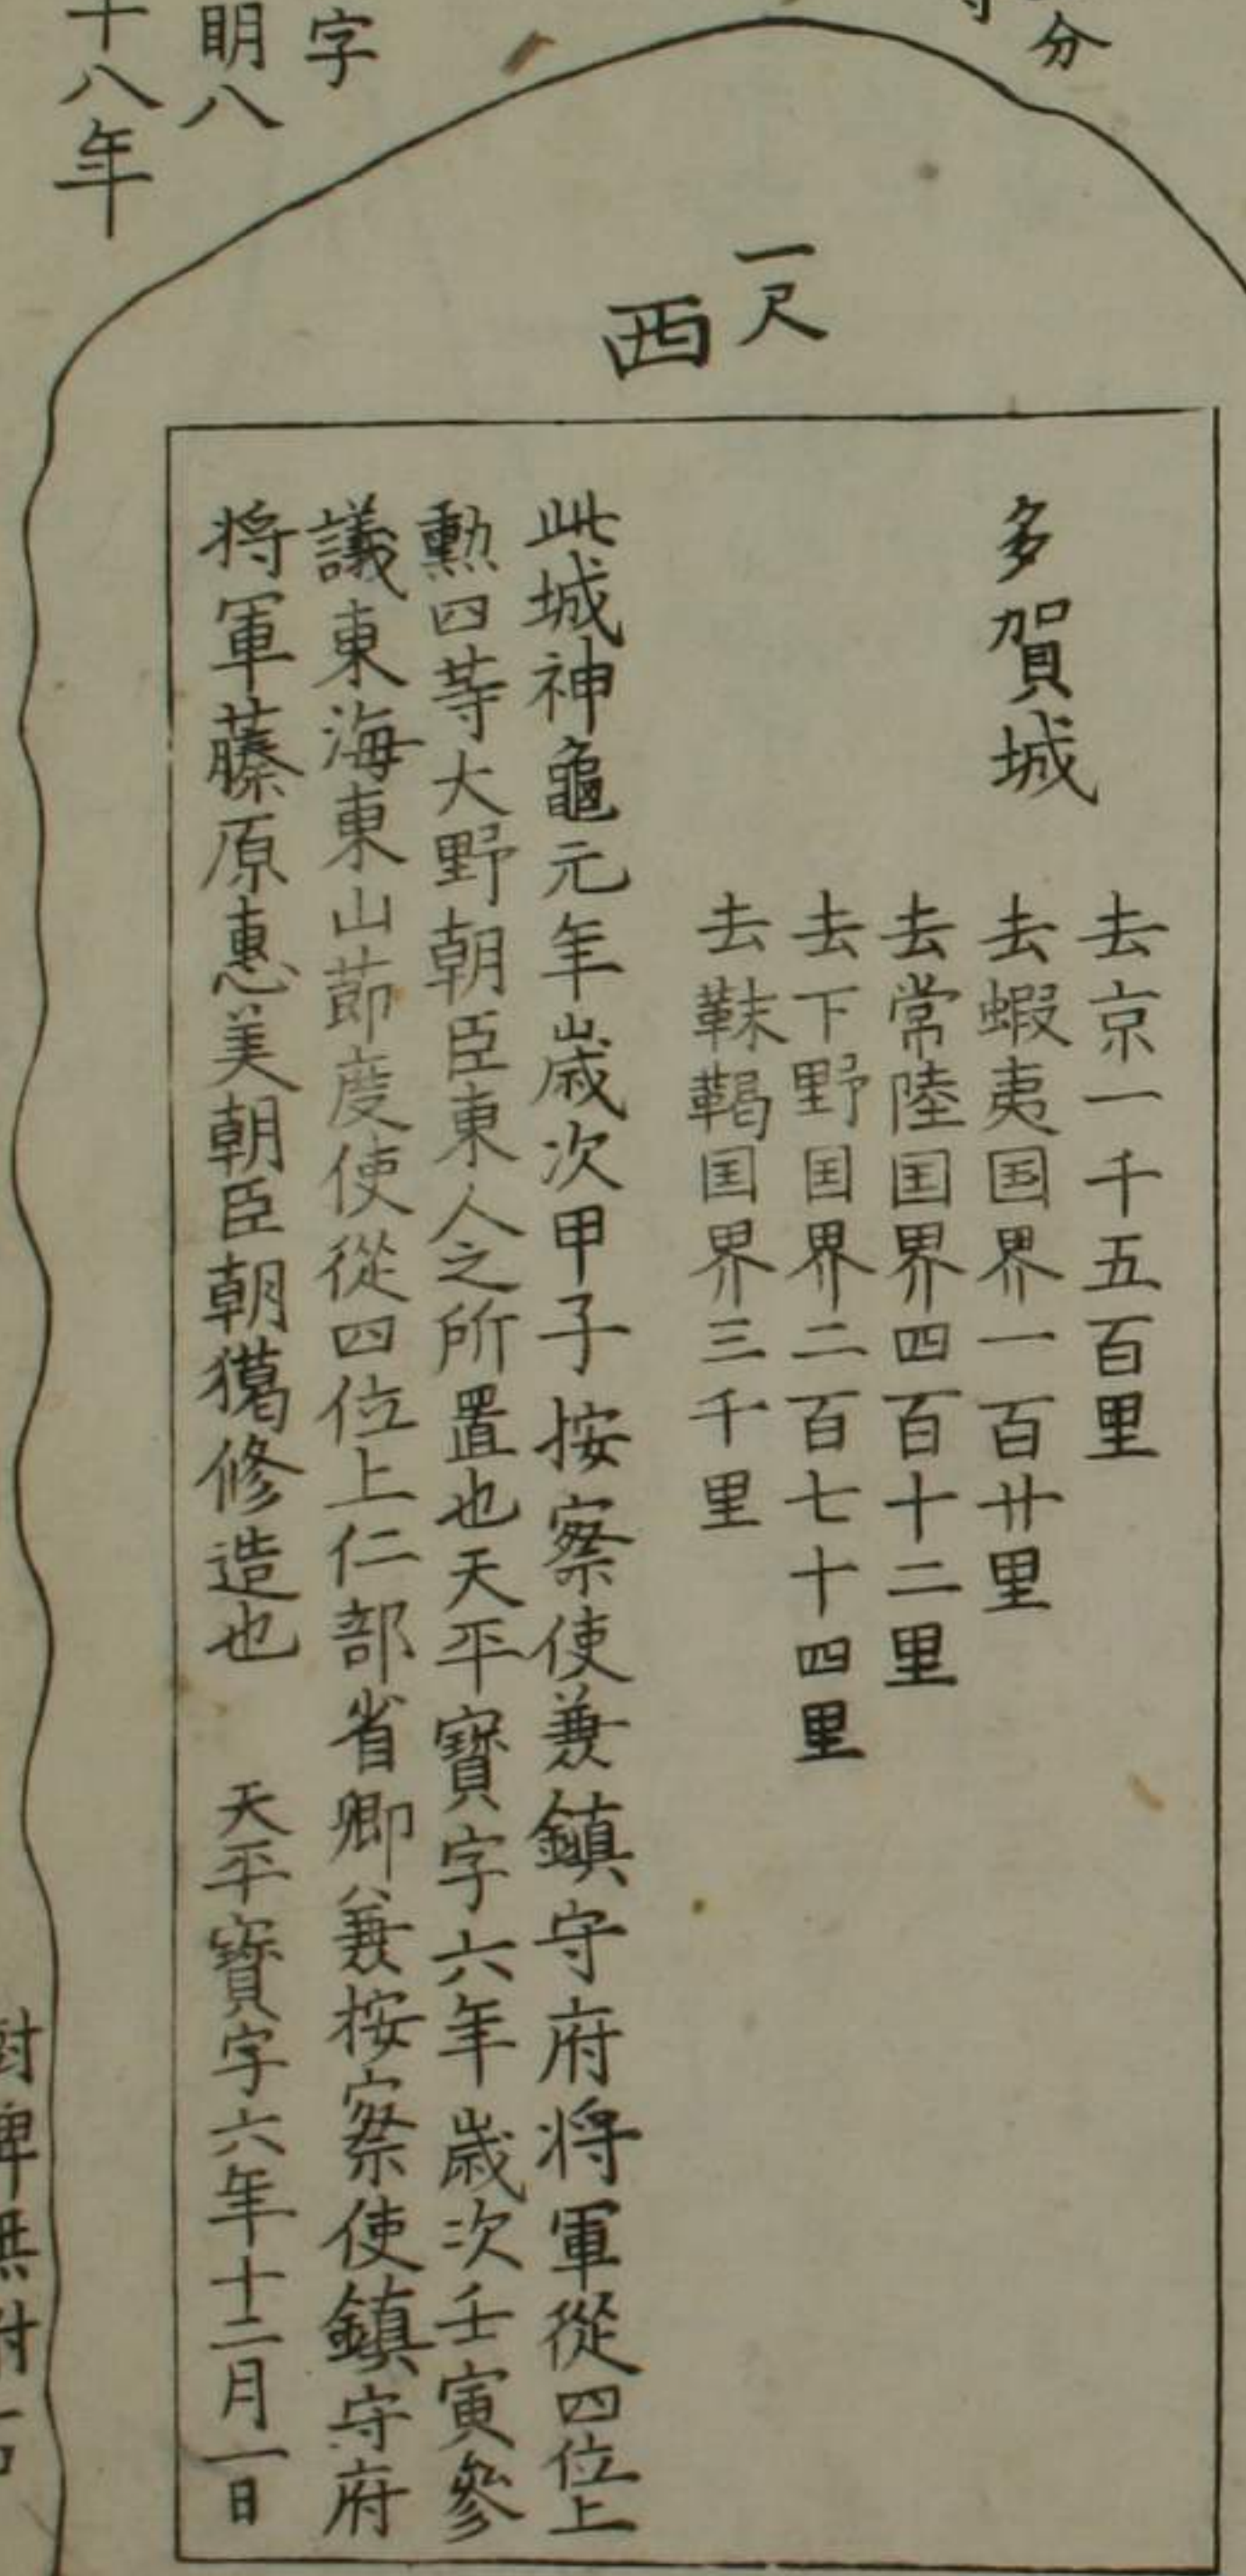 分
一尺
西
多賀城
去京一千五百里
去蝦夷国界一百廿里
去常陸国界四百十二里
去下野国界二百七十四里
去靺鞨国界三千里
此城神龜元年歳次甲子按察使兼鎮守府将軍從四位上
勲四等大野朝臣東人之所置也天平寶字六年歳次壬寅參
議東海東山節度使從四位上仁部省卿兼按察使鎮守府
将軍藤原惠美朝臣朝獦修造也 天平寶字六年十二月一日
字
明八
十八年